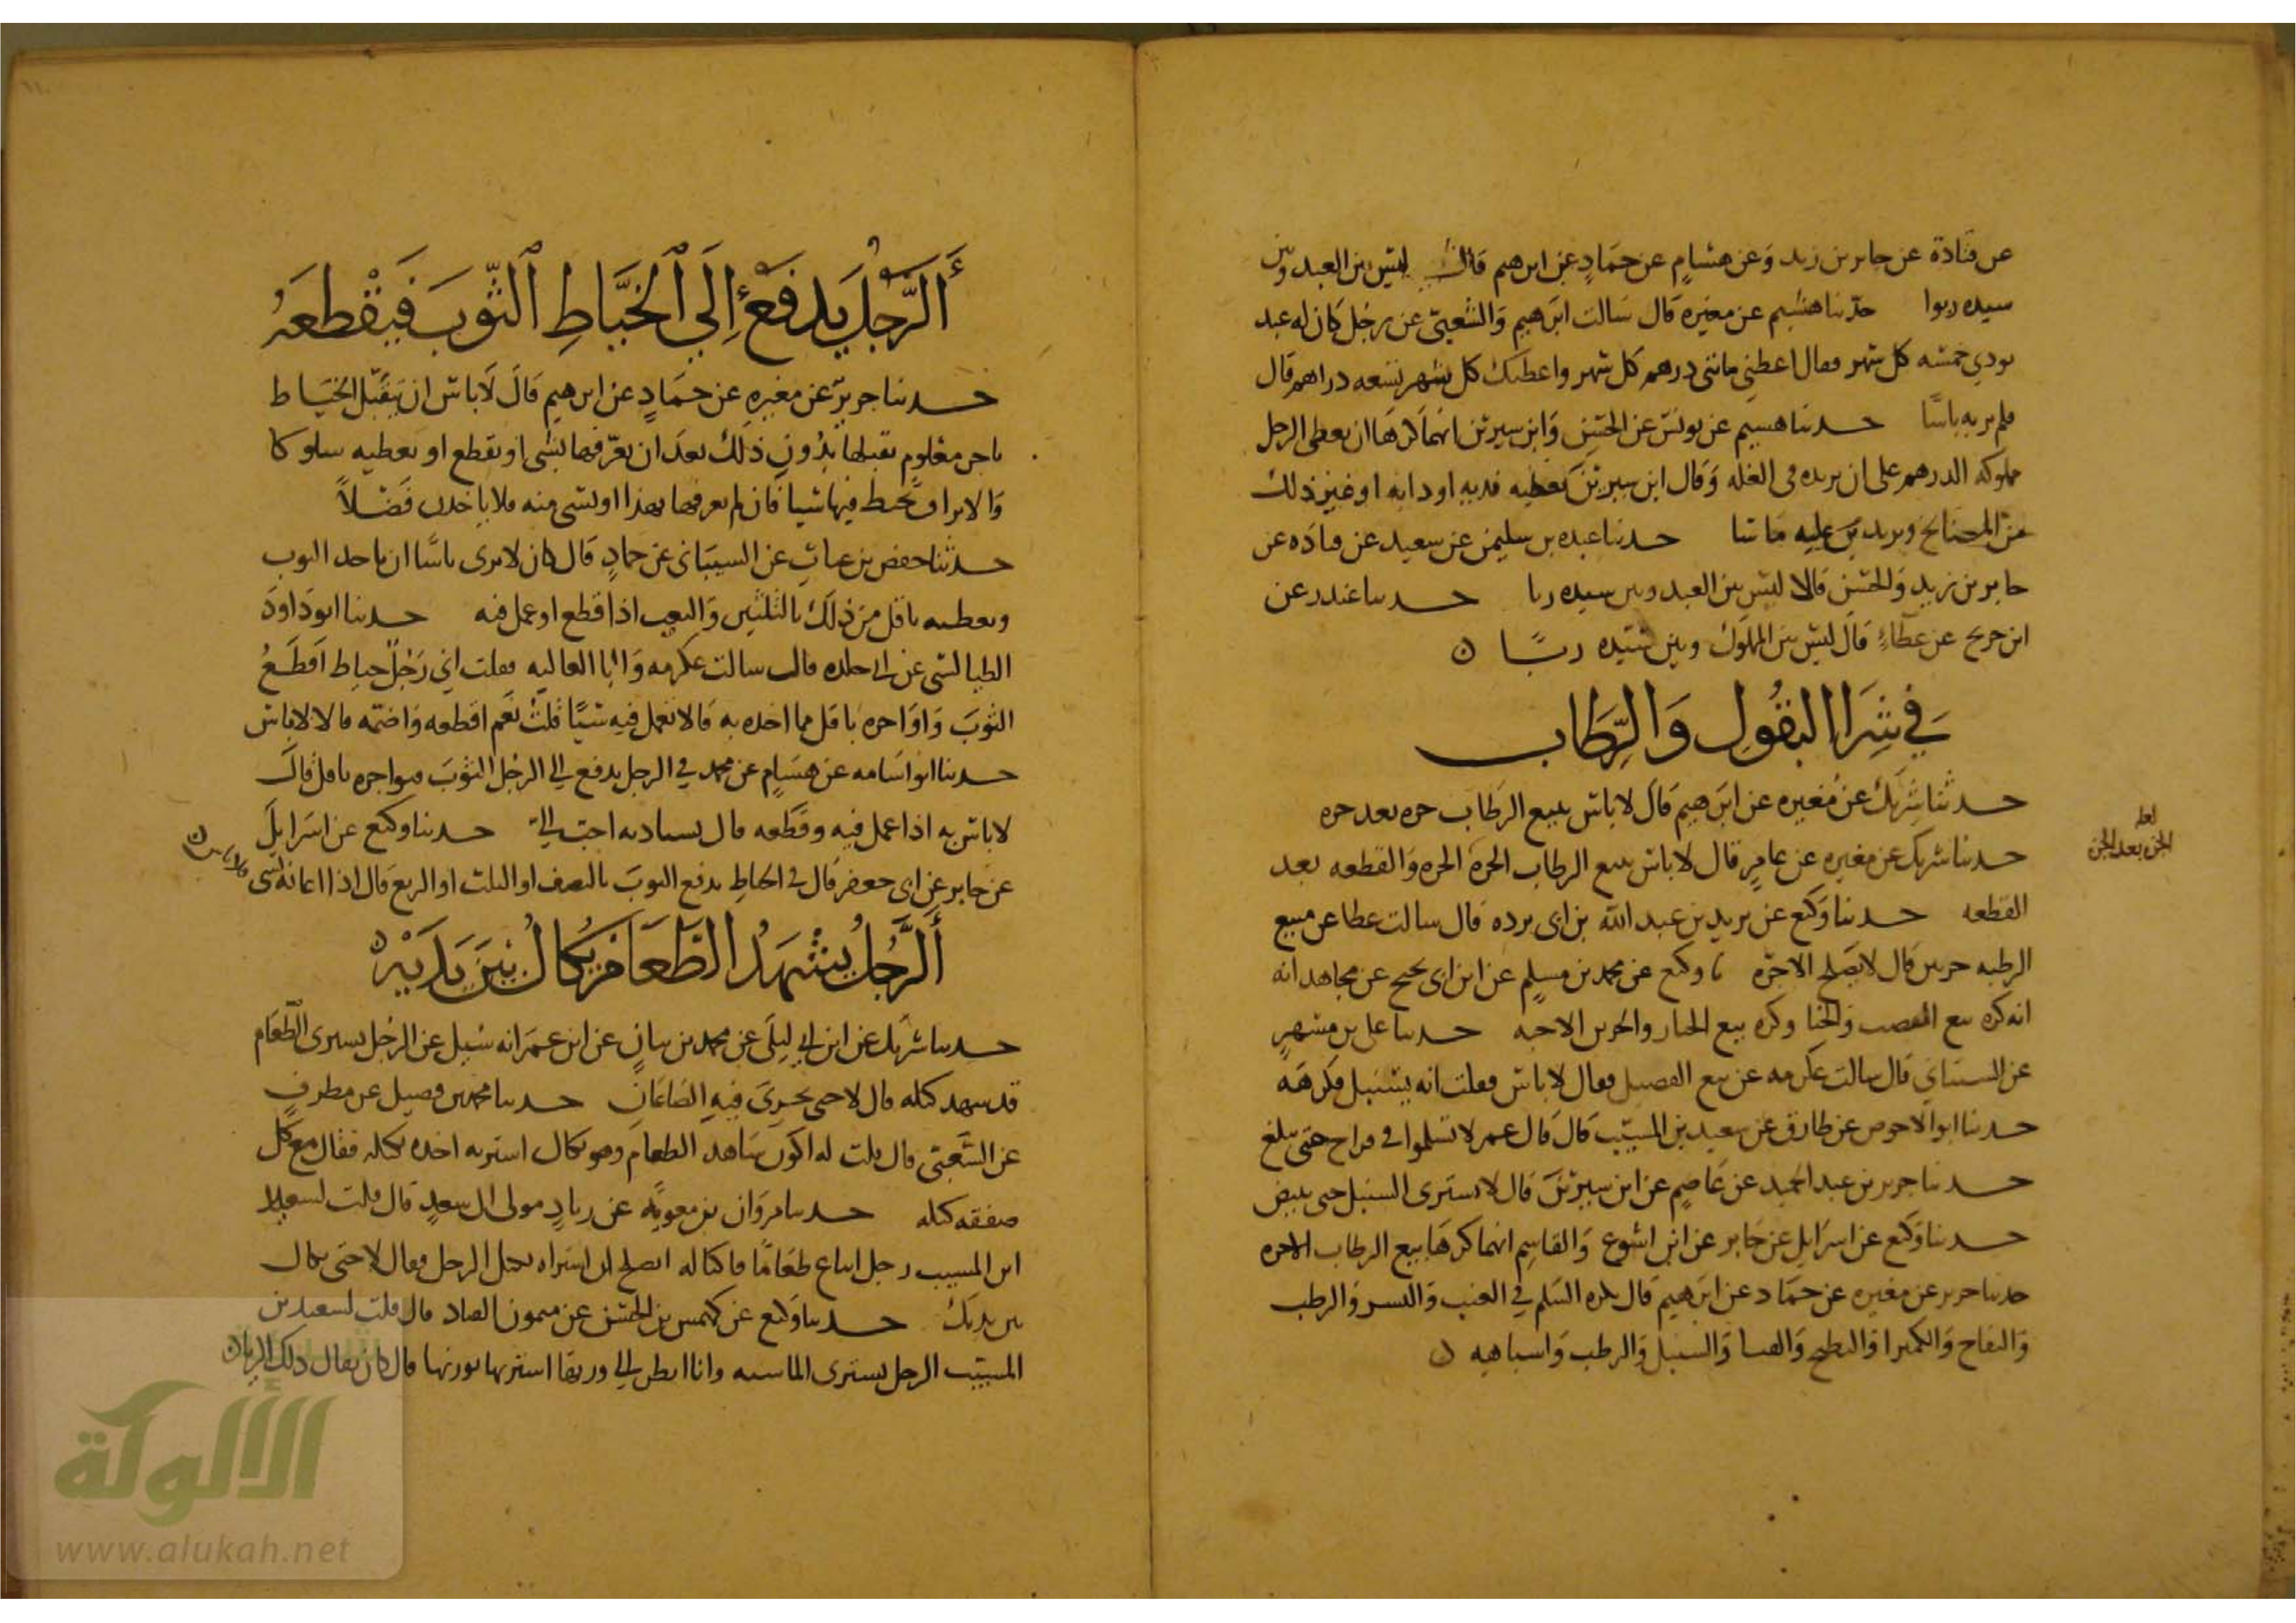 عن قتادة عن جابر بن زيد وَعن هشامٍ عن حمَادٍ عن ابرهيم قَالَ ليسَ بين العبد وبين
سيده ربوا حدثنا هشيم عن مغيره قال سَالت ابرَهيم وَالشعبيّ عن رجُل كان له عبد
يودي خمسَه كل شهر فقال اعطني مائتي درهم كل شهر واعطيك كل شهر تسعه دراهم قال
فلم ير به باسًا حدثنا هشيم عن يونسَ عن الحسَن وَابن سيرين انهمَا كرهَا ان يعطي الرجل
مملوكه الدرهم على ان يزيده في الغله وَقال ابن سيرين يعطيه قدر به او دابه او غير ذلك
من المصالح ويزيدُ عليه مَا شا حدثنا عبده بن سليمن عن سعيد عن قتادَه عن
جابر بن زيد وَالحسَن قالا ليسَ بين العبد وبين سيده ربا حدثنا غندر عن
ابن جريج عن عطَاءٍ قالَ ليسَ بين المملوك وبين سَيّده ربًا
في شِرَا البقُولِ وَالرِّطَاب
حدثنا شريك عن مُغيره عن ابرَهيم قالَ لا باسَ ببيع الرطَاب جزه بعد جزه
حدثنا شريك عن مغيره عن عامرٍ قال لا باسَ ببيع الرطاب الجزة الجزه وَالقطعه بعد
القطعه حدثنا وَكيع عن يزيد بن عبد الله بن ابى برده قال سالت عطا عن مبيع
الرطبه جزتين قال لا يصلح الا جزّه نا وكيع عن محمد بن مسلم عن ابن ابى نجيح عن مجاهد انه
انه كره بيع القصب وَالحنا وكره بيع الخيار والخربز الا جنيه حدثنا على بن مسهرٍ
عن الشيبانى قال سالت عكرمه عن بيع القصيل فقال لا باسَ فقلت انه يسنبل فكرهَه
حدثنا ابوا الاحوص عن طارق عن سعيد بن المسيّب قالَ قال عمر لا تسلموا في فراخ حتى يبلغ
حدثنا جرير بن عبد الحميد عن عاصمٍ عن ابن سيرينَ قال لا تشترى السنبل حتى يبيض
حدثنا وَكيع عن اسرَايل عن جَابر عن ابن اشوع وَالقاسمِ انهما كرهَا بيع الرطاب الا جزه
حدثنا جرير عن مغيره عن حمَاد عن ابرَهيم قال يكره السّلم في العنب وَالبسر وَالرطب
وَالتفاح وَالكمثرا وَالبطيخ وَالقثا وَالسنبل وَالرطب وَاشباهِه
لعله
الجز بعد الجز
أَلرَّجُل يَدفَعُ إِلَي ٱلخَيَّاطِ ٱلثَّوبَ فَيَقْطعَهُ
حدثنا جريرٌ عن مغيرهِ عن حمَادٍ عن ابرهيم قالَ لَا باسَ ان يَتَقبّل الخيَاط
باجر معلوم يقبلها بدُون ذَلك بعدَ ان يعَرّفها بشى او يقطع او يعطيه سلوكا
وَالابرا ق يخيط فيها شيا فان لم يعرفها بهذا او بشى منه فلا ياخذن فَضلاً
حدثنا حفص بن غياثٍ عن الشيبَانى عن حمادٍ قال كان لا يرى باسًا ان ياخد الثوب
ويعطيه باقل مِن ذلك بالثلثين وَالنصف اذا قطع او عمل فيه حدثنا ابو دَاودَ
الطيالسى عن ابى خلده قال سالت عكرمه وَابا العاليه فقلت اني رَجُل خياط اَقطَعُ
الثوبَ وَاوَاجره باقل مما اخده به قالا تعمل فيه شيًا قلتُ نعَم اقطعه وَاضمّه قالا لا باس
حدثنا ابوا اسَامه عن هشَامٍ عن محمد في الرجل يدفع الي الرجُل الثوبَ فيواجره باقل قالَ
لا باسَ به اذا عمل فيه وقطعه قال يستادنه احبّ اليّ حدثنا وكيع عن اسرَايلَ
عن جابر عن ابى جعفر قال في الخياطِ يدفع الثوبَ بالنصف او الثلث او الربع قال اذا اعانه بشى
أَلرَّجُلُ يشْهَدُ الطَّعَامَ يُكَالُ بَيْنَ يَدَيْهِ
حدثنا شريك عن ابن ابي ليلَى عن محمد بن بيانٍ عن ابن عمَر انه سُيل عن الرجُل يشترى الطّعَام
قد شهد كيله قال لا حتى يجريَ فيه الصَاعَانِ حدثنا محمد بن فضيل عن مطرفٍ
عن الشَّعبيّ قال قلت له اكون شاهد الطعام وهو يكال اشتريه اخده بكيله فقال مع كل
صفقه كيله حدثنا مروَان بن معويَه عن زيادٍ مولى ال سعدٍ قال قلت لسعيد
ابن المسيب رجل ابتاع طعَامًا فاكتاله ايصلح ان اشتراه بكيل الرجل فقال لا حتى يكال
بين يديك حدثنا وَكيع عن كهمس بن الحسَن عن ميمون القناد قال قلت لسعيد بن
المسيّب الرجل يشترى الماشيه وانا انظر الي وزنها اشتريها بوزنها قال كان يقال ذلك الربا
الألوكة
www.alukah.net